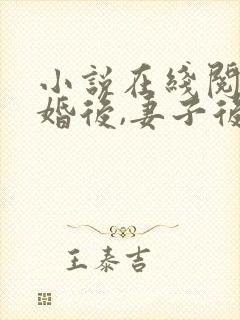 小説在綫閱
婚後,妻子後
王泰吉